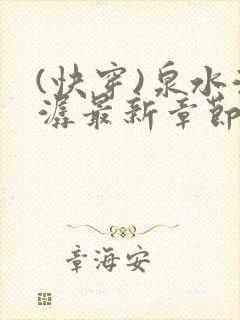 (快穿)泉水
潺最新章节
章海安